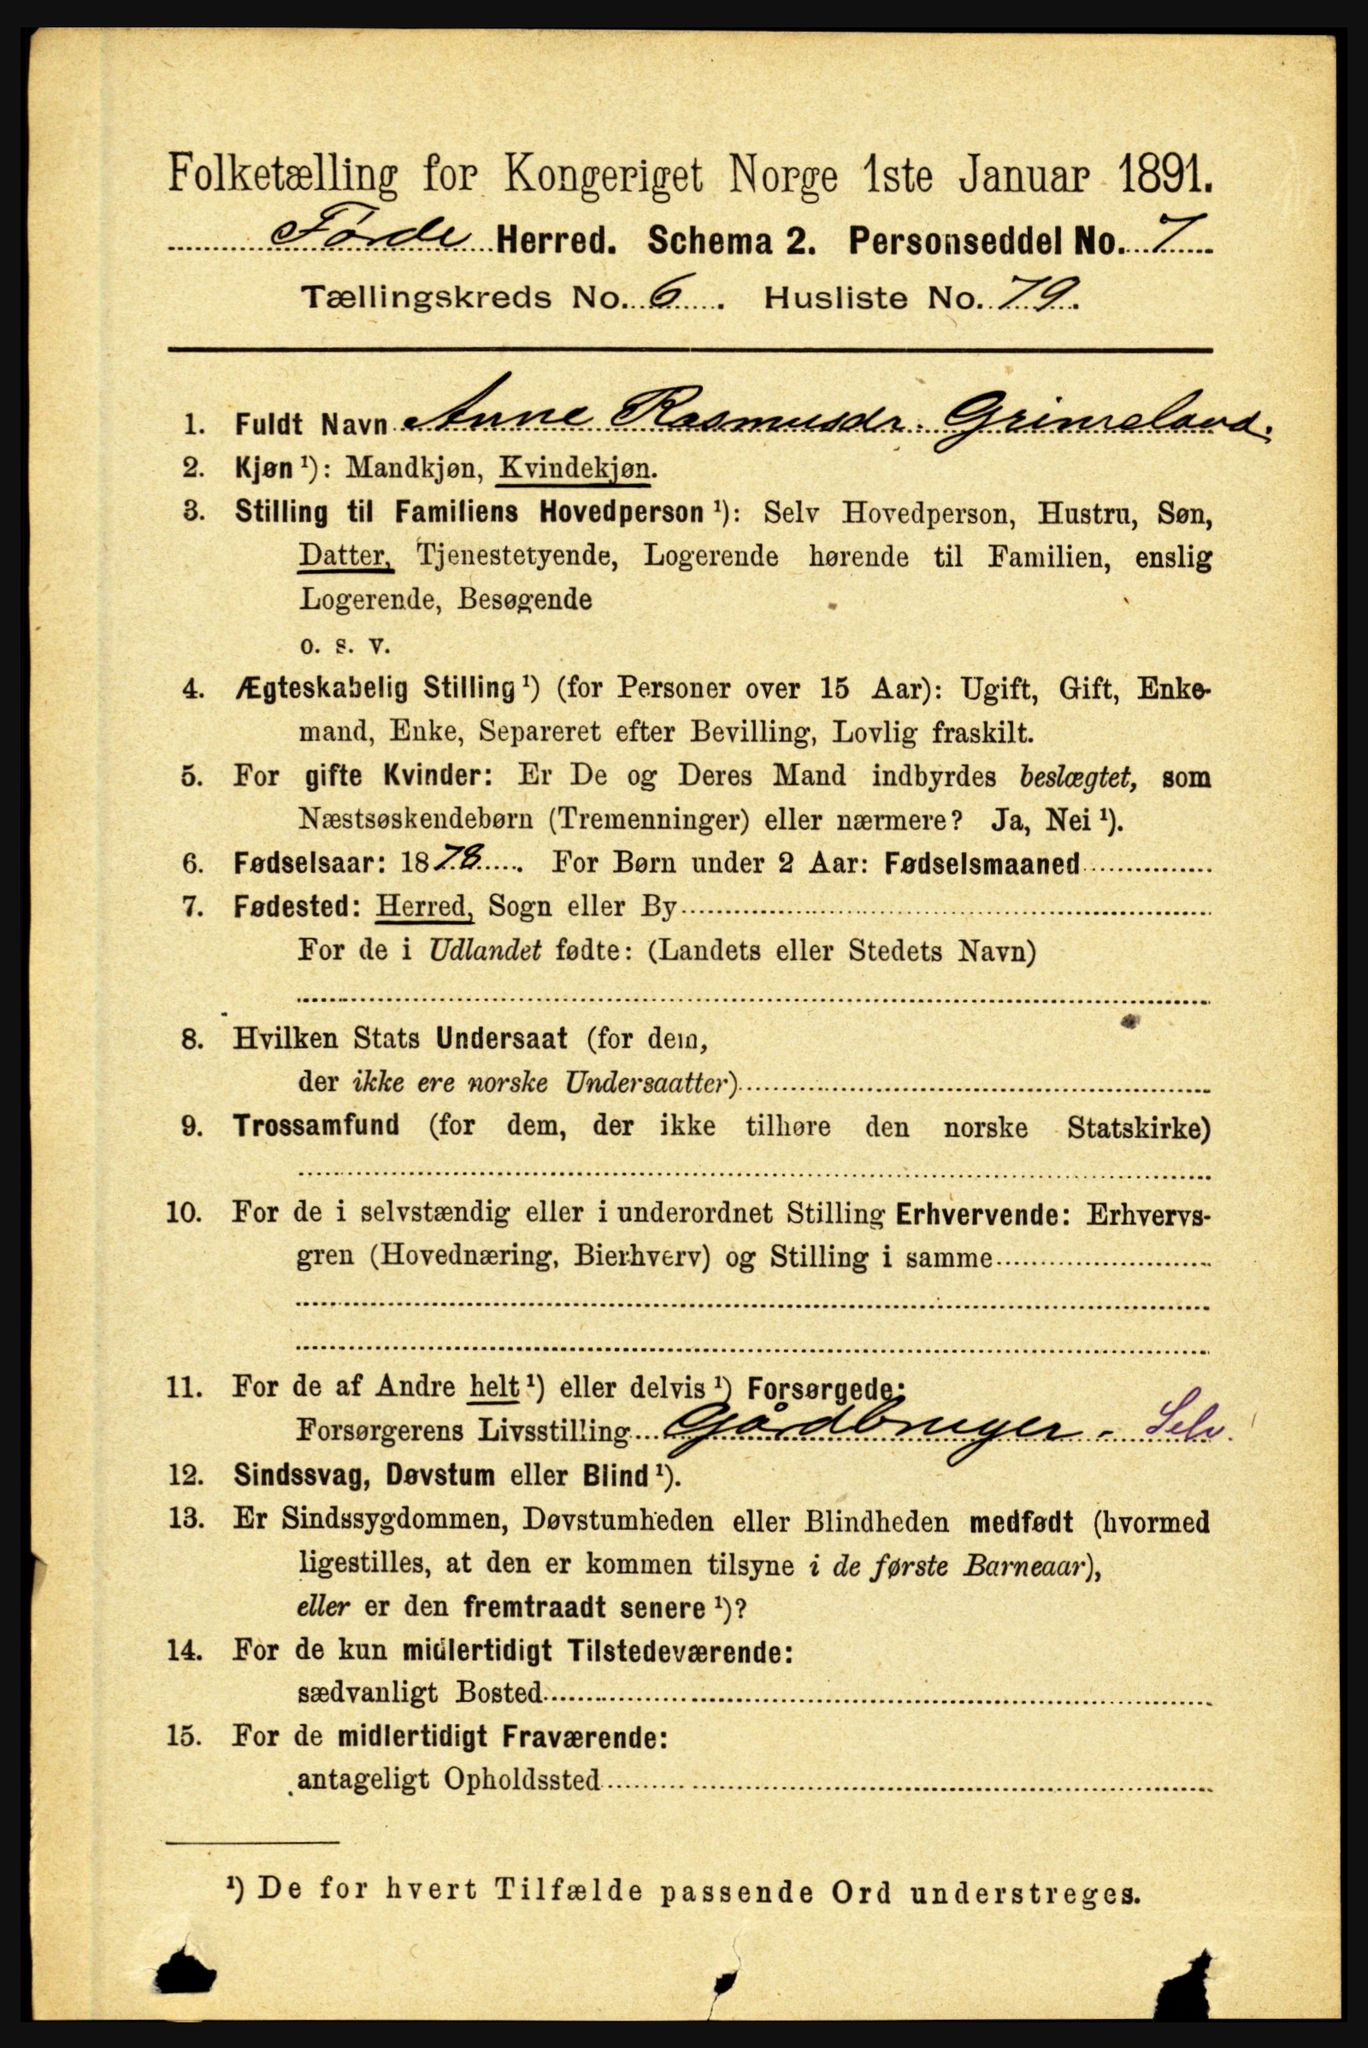 Folketælling for Kongeriget Norge 1ste Januar 1891.
Førde Herred. Schema 2. Personseddel No. 7
Tællingskreds No. 6. Husliste No. 79.
1. Fuldt Navn Anne Rasmusdr. Grimeland.
2. Kjøn ¹): Mandkjøn, Kvindekjøn.
3. Stilling til Familiens Hovedperson ¹): Selv Hovedperson, Hustru, Søn,
Datter, Tjenestetyende, Logerende hørende til Familien, enslig
Logerende, Besøgende
o. s. v.
4. Ægteskabelig Stilling ¹) (for Personer over 15 Aar): Ugift, Gift, Enke-
mand, Enke, Separeret efter Bevilling, Lovlig fraskilt.
5. For gifte Kvinder: Er De og Deres Mand indbyrdes beslægtet, som
Næstsøskendebørn (Tremenninger) eller nærmere? Ja, Nei ¹).
6. Fødselsaar: 1878. For Børn under 2 Aar: Fødselsmaaned
7. Fødested: Herred, Sogn eller By
For de i Udlandet fødte: (Landets eller Stedets Navn)
8. Hvilken Stats Undersaat (for dem,
der ikke ere norske Undersaatter)
9. Trossamfund (for dem, der ikke tilhøre den norske Statskirke)
10. For de i selvstændig eller i underordnet Stilling Erhvervende: Erhvervs-
gren (Hovednæring, Bierhverv) og Stilling i samme
11. For de af Andre helt ¹) eller delvis ¹) Forsørgede:
Forsørgerens Livsstilling Gårdbruger. Selv.
12. Sindssvag, Døvstum eller Blind ¹).
13. Er Sindssygdommen, Døvstumheden eller Blindheden medfødt (hvormed
ligestilles, at den er kommen tilsyne i de første Barneaar),
eller er den fremtraadt senere ¹)?
14. For de kun midlertidigt Tilstedeværende:
sædvanligt Bosted
15. For de midlertidigt Fraværende:
antageligt Opholdssted
¹) De for hvert Tilfælde passende Ord understreges.